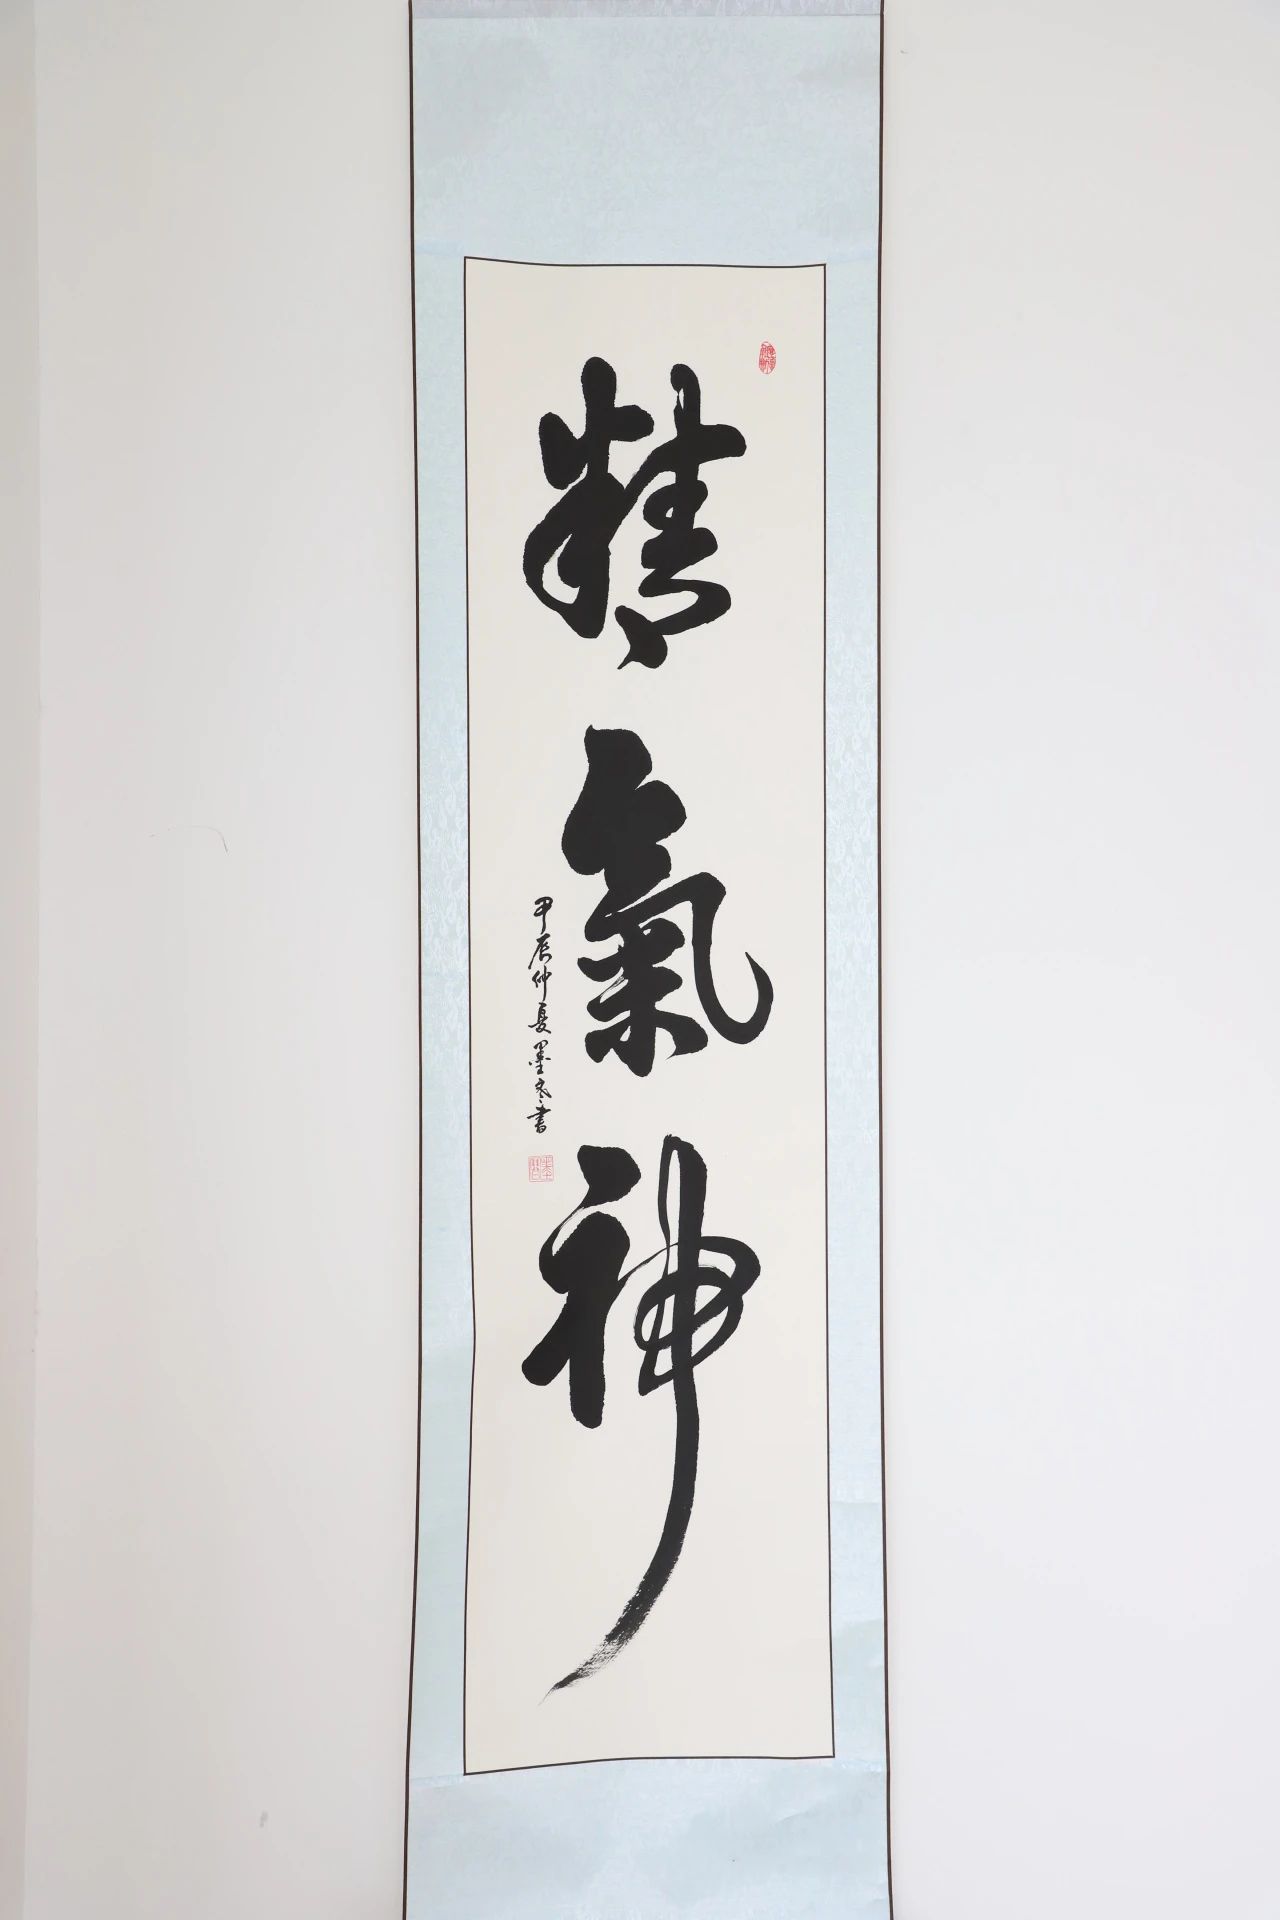 精氣神
甲辰仲夏墨冬書